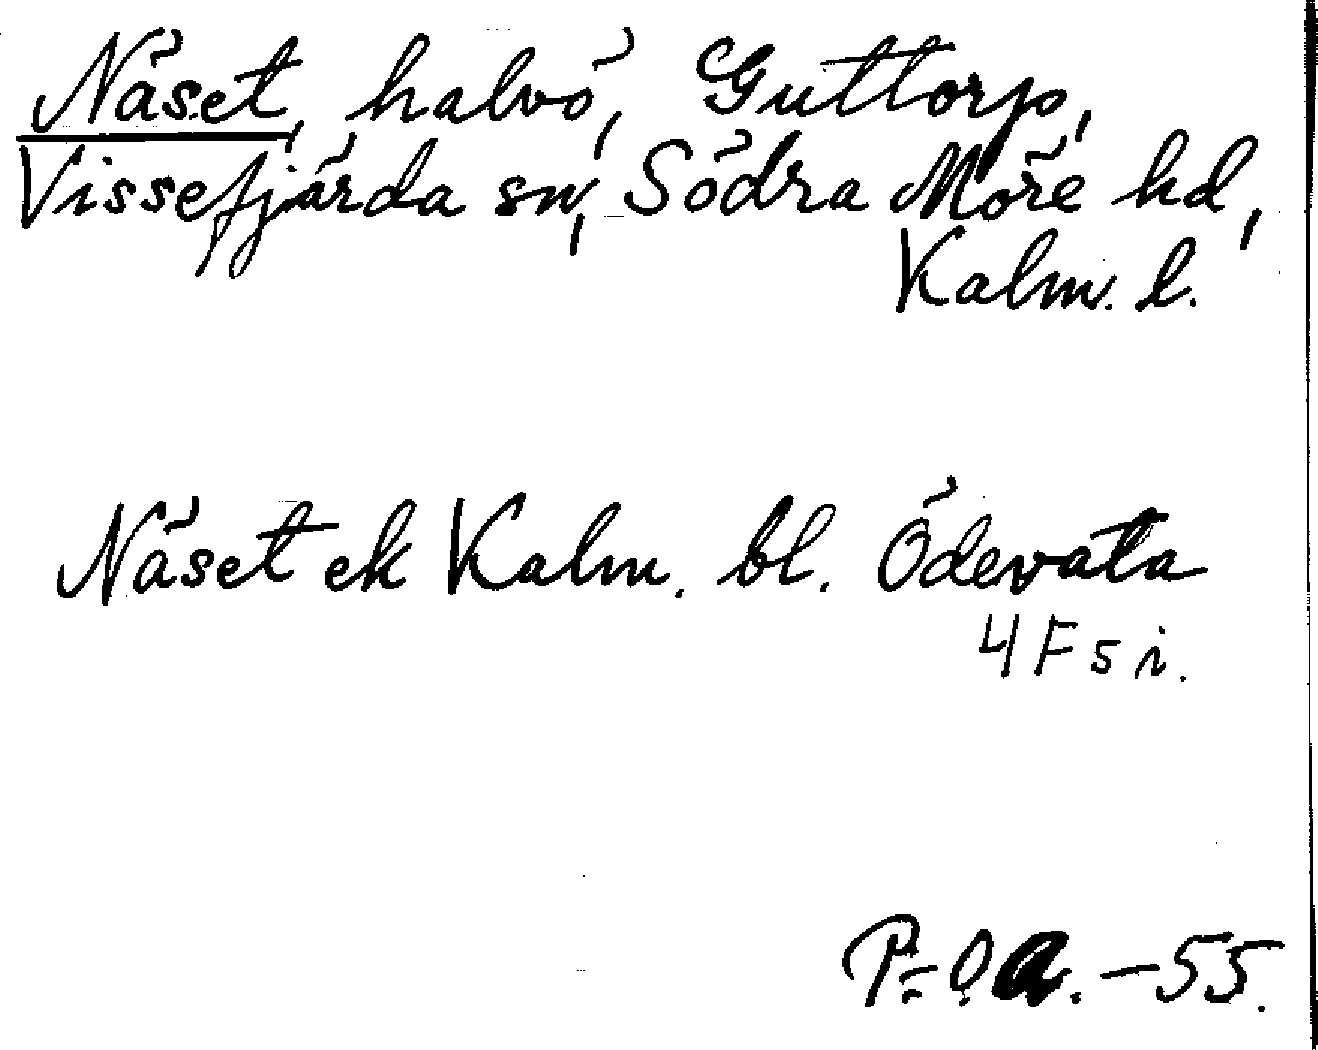 Näset, halvö, Guttorp,
Vissefjärda sn, Södra Möre hd,
Kalm. l.
Näset ek Kalm. bl. Ödevata
4 F 5 i.
P=O a. -55.